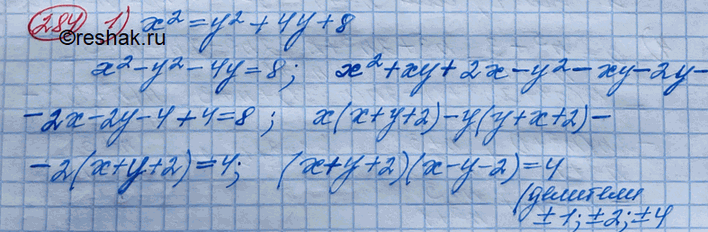 284 1) x² = y² + 4y + 8
©reshak.ru
x² - y² - 4y = 8; x² + xy + 2x - y² - xy - 2y -
- 2x - 2y - 4 + 4 = 8; x(x+y+2) - y(y+x+2) -
- 2(x+y+2) = 4; (x+y+2)(x-y-2) = 4
(делители
±1; ±2; ±4